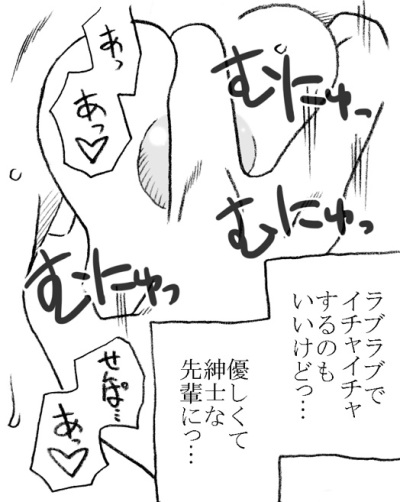 あっ
あっ♡
むにゅっ
むにゅっ
むにゅっ
ラブラブで
イチャイチャ
するのも
いいけどっ…
優しくて
紳士な
先輩にっ…
せんぱ…
あっ♡